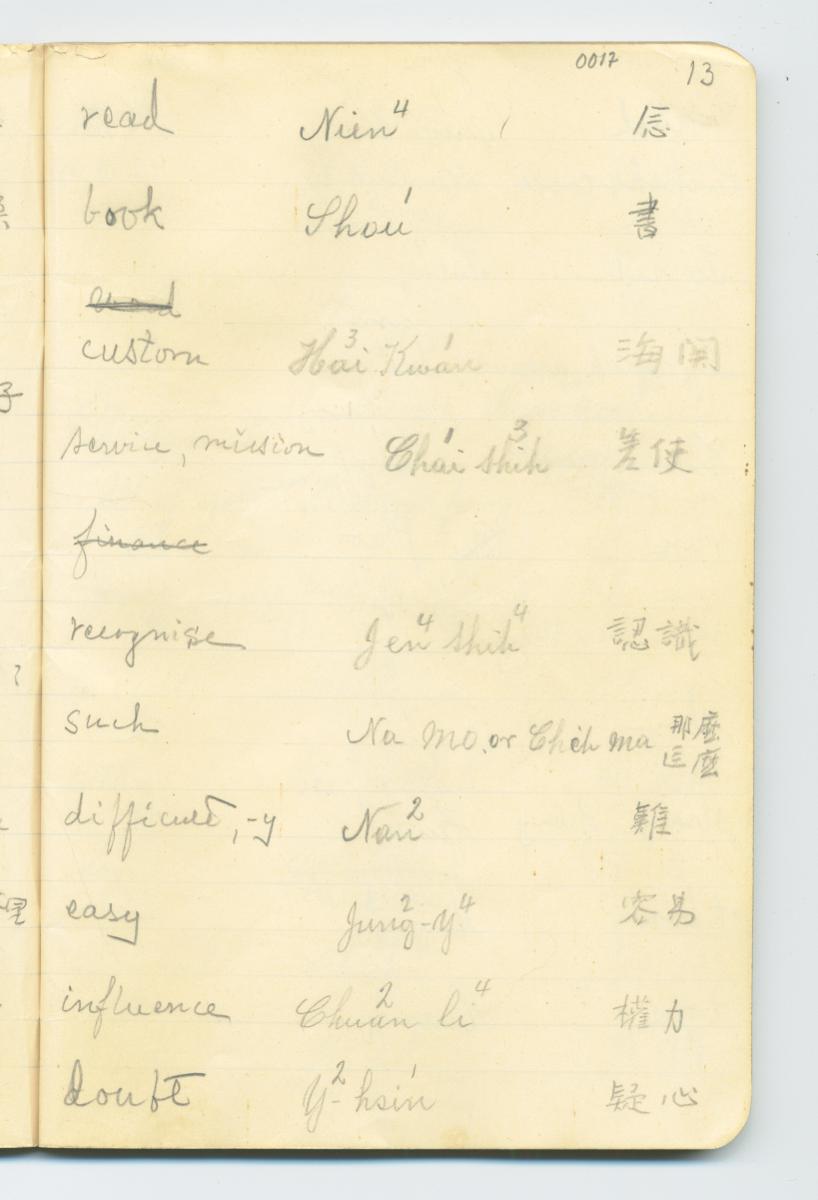 0017
13
read Nien⁴ 念
book Shou¹ 書
custom Hai³ Kwan¹ 海関
service, mission Chai¹ shih³ 差使
finance
recognise Jen⁴ shih⁴ 認識
such Na mo or Chéh ma 那麼
這麼
difficult, -y Nan² 難
easy Jung²-y⁴ 容易
influence Chuan² li⁴ 權力
doubt Y²-hsin¹ 疑心